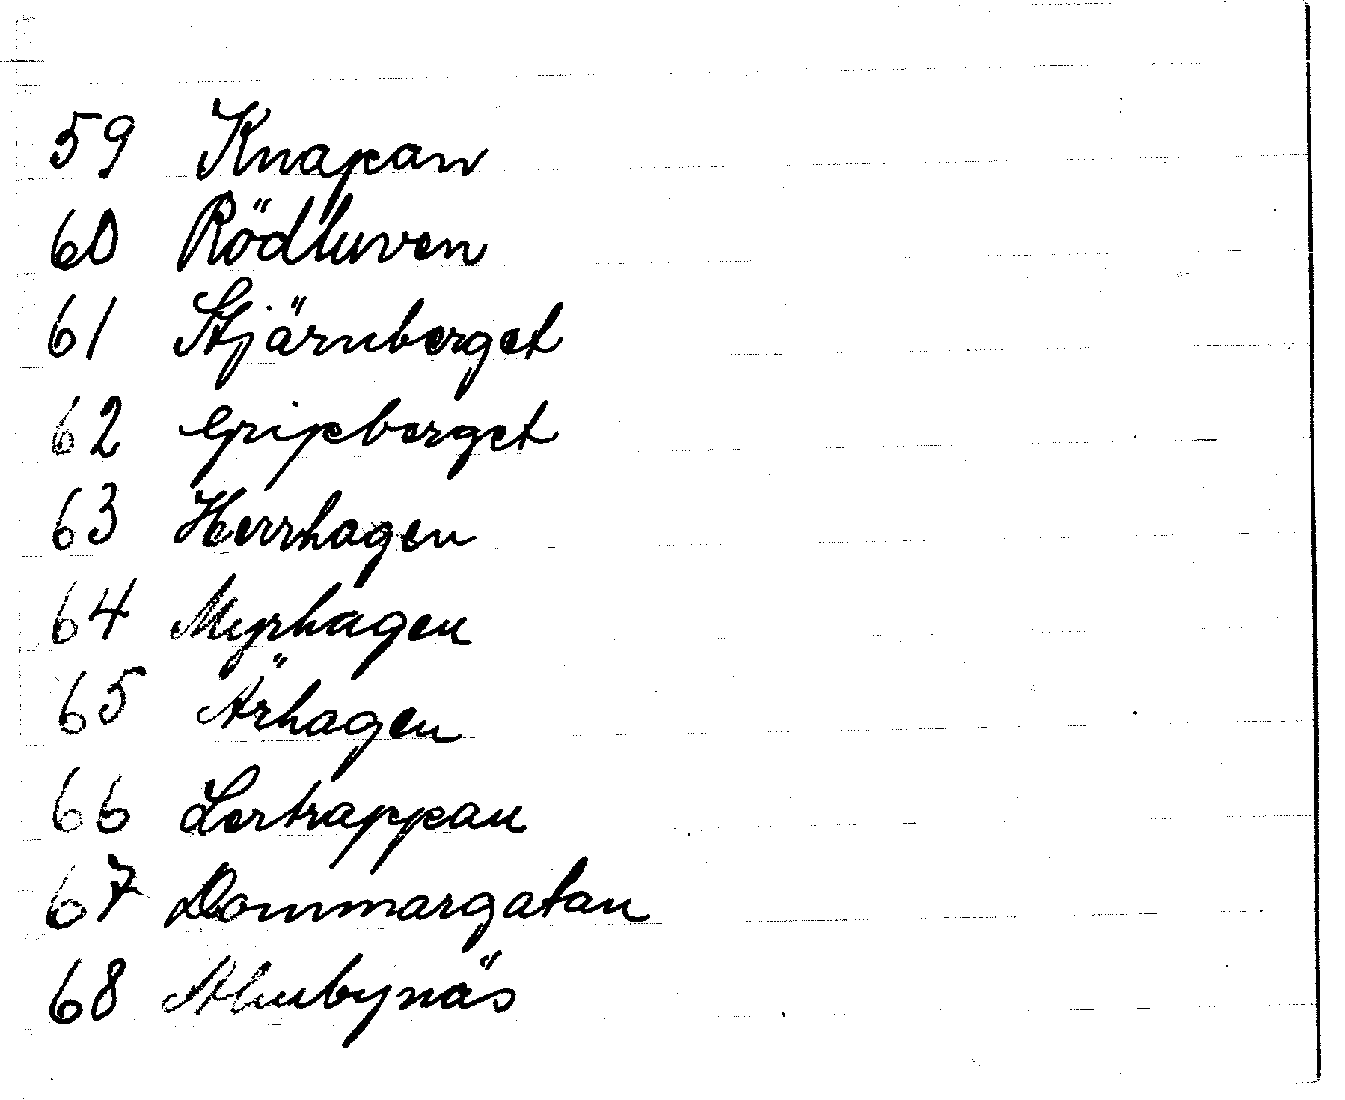 59 Knapan
60 Rödluven
61 Stjärnberget
62 Gripberget
63 Herrhagen
64 Myrhagen
65 Ärhagen
66 Lertrappan
67 Dammargatan
68 Almbynäs